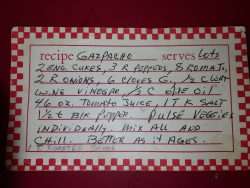 recipe GAZPACHO serves Lots
2 ENG CUKES, 3 R PEPPERS, 8 ROMATO,
2 R ONIONS, 6 CLOVES G., 1/2 C WHT
WING VINEGAR, 1/2 C OLIVE OIL
46 OZ. TOMATO JUICE, 1 TK SALT
1/2 t BLK PEPPER. PULSE VEGGIES
INDIVIDUALLY MIX ALL AND
CHILL. BETTER AS IT AGES.